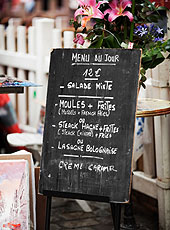 MENU DU JOUR
12 €
- SALADE MIXTE
- MOULES + FRITES
(MUSSELS + FRENCH FRIES)
OU
- STEACK HACHÉ + FRITES
(STEACK + FRIES)
OU
LASAGNE BOLOGNAISE
- CRÈME CARAMEL